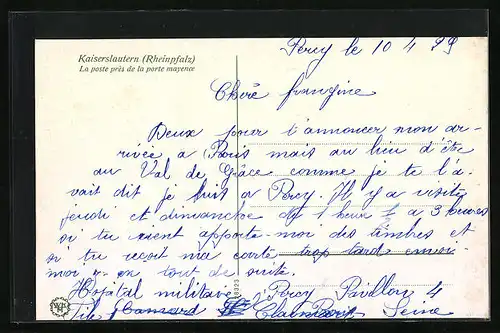 Kaiserslautern (Rheinpfalz)
La poste près de la porte mayence
Percy le 10 4
Chère frangine
Deux pour t'annoncer mon ar-
rivée a Paris mais au lieu d'être
au Val de Grâce comme je te l'a-
vait dit je suis a Percy. Il y a visite
jeudi et dimanche de 1 heure ½ a 3 heures
si tu vient apporte-moi des timbres et
si tu reçoit ma carte trop tard envoi-
moi en tout de suite.
Hopital militaire Percy Pavillon 4
Clamart Seine